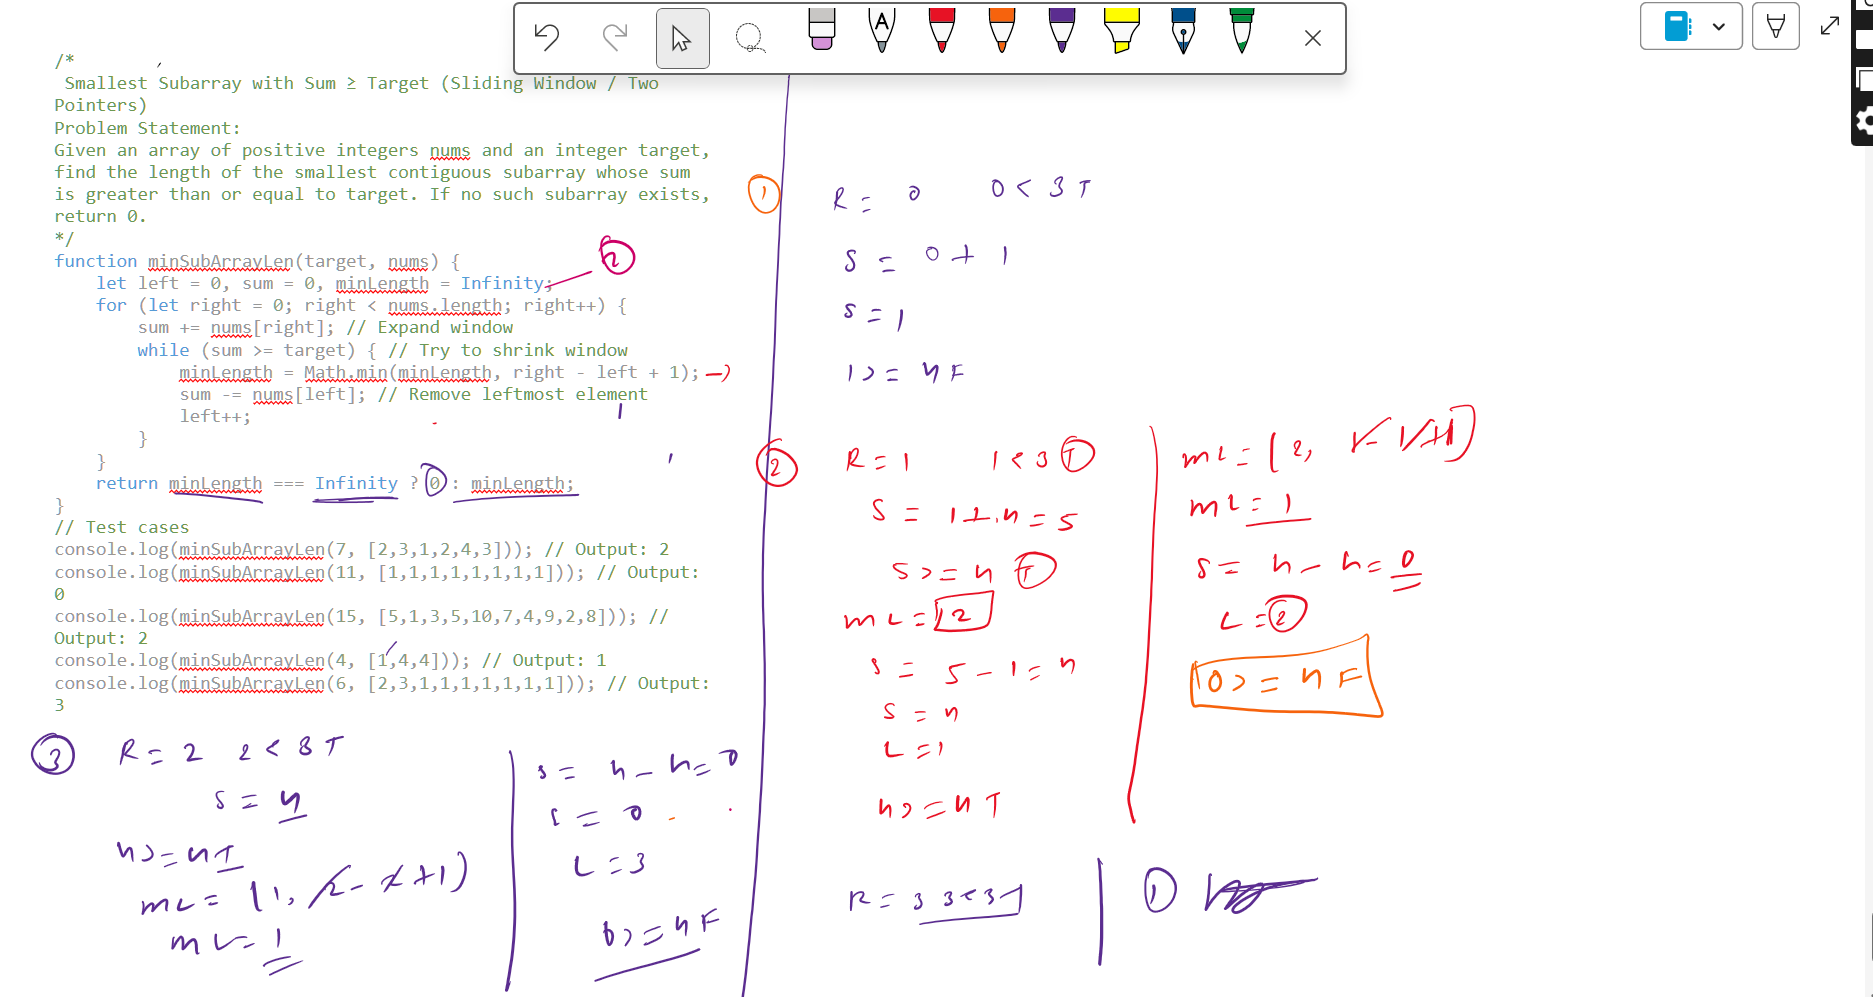 /*
Smallest Subarray with Sum ≥ Target (Sliding Window / Two
Pointers)
Problem Statement:
Given an array of positive integers nums and an integer target,
find the length of the smallest contiguous subarray whose sum
is greater than or equal to target. If no such subarray exists,
return 0.
*/
function minSubArrayLen(target, nums) {
let left = 0, sum = 0, minLength = Infinity;
2
for (let right = 0; right < nums.length; right++) {
sum += nums[right]; // Expand window
while (sum >= target) { // Try to shrink window
minLength = Math.min(minLength, right - left + 1);
sum -= nums[left]; // Remove leftmost element
left++;
}
}
return minLength === Infinity ? 0 : minLength;
}
// Test cases
console.log(minSubArrayLen(7, [2,3,1,2,4,3])); // Output: 2
console.log(minSubArrayLen(11, [1,1,1,1,1,1,1,1])); // Output:
0
console.log(minSubArrayLen(15, [5,1,3,5,10,7,4,9,2,8])); //
Output: 2
console.log(minSubArrayLen(4, [1,4,4])); // Output: 1
console.log(minSubArrayLen(6, [2,3,1,1,1,1,1,1,1])); // Output:
3
1
R = 0 0 < 3 T
S = 0 + 1
S = 1
1 >= 4 F
2
R = 1 1 < 3 T
S = 1 + 4 = 5
5 >= 4 T
mL = 2
S = 5 - 1 = 4
S = 4
L = 1
4 >= 4 T
mL = (2, 1 - 1 + 1)
mL = 1
S = 4 - 4 = 0
L = 2
0 >= 4 F
3
R = 2 2 < 3 T
S = 4
4 >= 4 T
mL = (1, 2 - 2 + 1)
mL = 1
S = 4 - 4 = 0
S = 0
L = 3
0 >= 4 F
R = 3 3 < 3
1